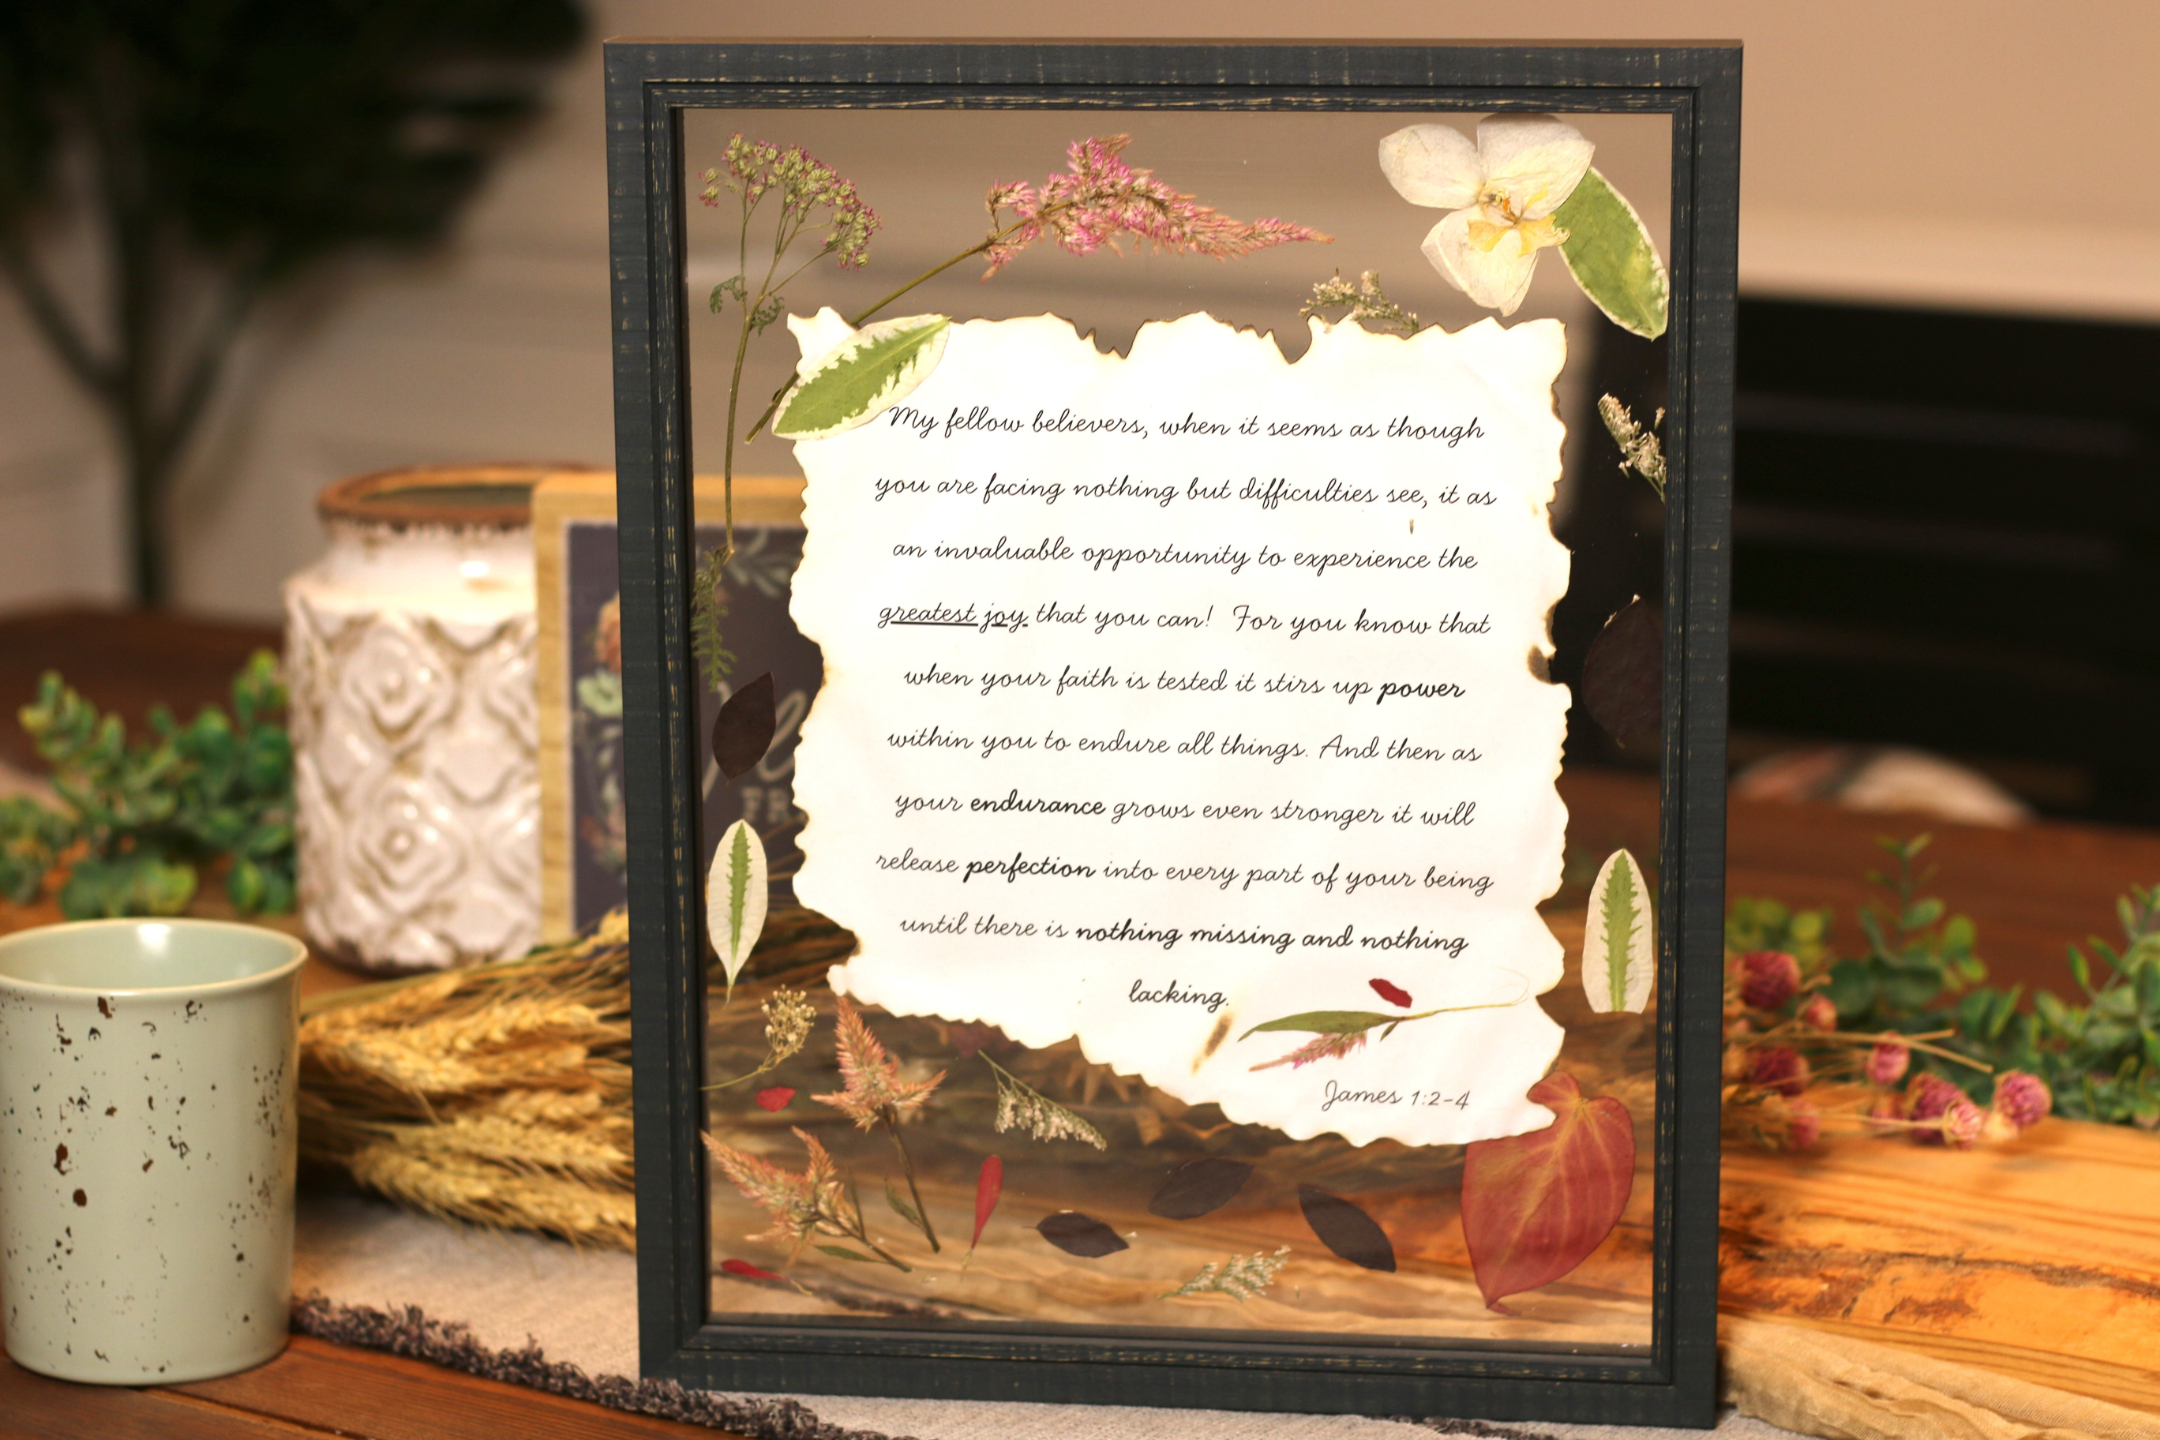 My fellow believers, when it seems as though
you are facing nothing but difficulties see, it as
an invaluable opportunity to experience the
greatest joy that you can! For you know that
when your faith is tested it stirs up power
within you to endure all things. And then as
your endurance grows even stronger it will
release perfection into every part of your being
until there is nothing missing and nothing
lacking.
James 1:2-4